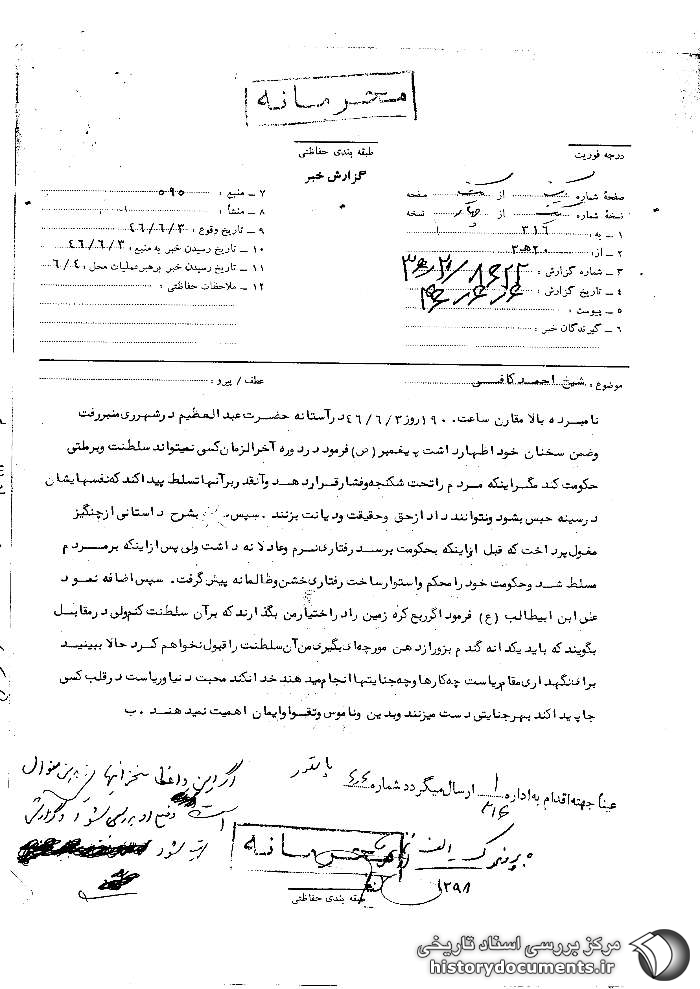 محرمانه
درجه فوریت
طبقه بندی حفاظتی
گزارش خبر
صفحهٔ شماره یک از یک صفحه
نسخهٔ شماره یک از چهار نسخه
۱ ـ به : ۳۱۶
۲ ـ از : ۲۰ ه ۳
۳ ـ شماره گزارش :
۴ ـ تاریخ گزارش :
۵ ـ پیوست :
۶ ـ گیرندگان خبر :
۷ ـ منبع : ۵۹۵
۸ ـ منشأ :
۹ ـ تاریخ وقوع : ۴۶/۶/۳
۱۰ ـ تاریخ رسیدن خبر به منبع : ۴۶/۶/۳
۱۱ ـ تاریخ رسیدن خبر برهبر عملیات محل : ۶/۴
۱۲ ـ ملاحظات حفاظتی :
موضوع : شیخ احمد کافی
عطف / پیرو :
نامبرده بالا مقارن ساعت ۱۹۰۰ روز ۴۶/۶/۳ در آستانه حضرت عبدالعظیم در شهرری منبر رفت
وضمن سخنان خود اظهار داشت پیغمبر (ص) فرمود در دوره آخرالزمان کسی نمیتواند سلطنت و برملتی
حکومت کند مگر اینکه مردم را تحت شکنجه و فشار قرار دهد و آنقدر برآنها تسلط پیدا کند که نفسهایشان
در سینه حبس بشود ونتوانند داد از حق وحقیقت ودیانت بزنند . سپس بشرح داستانی از چنگیز
مغول پرداخت که قبل از اینکه بحکومت برسد رفتاری نرم وعادلانه داشت ولی پس از اینکه بر مردم
مسلط شد وحکومت خود را محکم واستوار ساخت رفتاری خشن وظالمانه پیش گرفت . سپس اضافه نمود
علی ابن ابیطالب (ع) فرمود اگر ربع کره زمین را در اختیار من بگذارند که برآن سلطنت کنم ولی در مقابل
بگویند که باید یکدانه گندم بزور از دهن مورچه ای بگیری من آن سلطنت را قبول نخواهم کرد حالا ببینید
برای نگهداری مقام ریاست چه کارها وچه جنایتها انجام میدهند خدا نکند محبت دنیا وریاست در قلب کسی
جا پیدا کند بهر جنایتی دست میزنند وبدین وناموس وتقوا وایمان اهمیت نمیدهند . ب
عیناً جهت اقدام به اداره ۱ ۳۱۶ ارسال میگردد شماره
اگر این واعظ سخنرانیها
محرمانه
طبقه بندی حفاظتی
مرکز بررسی اسناد تاریخی
historydocuments.ir